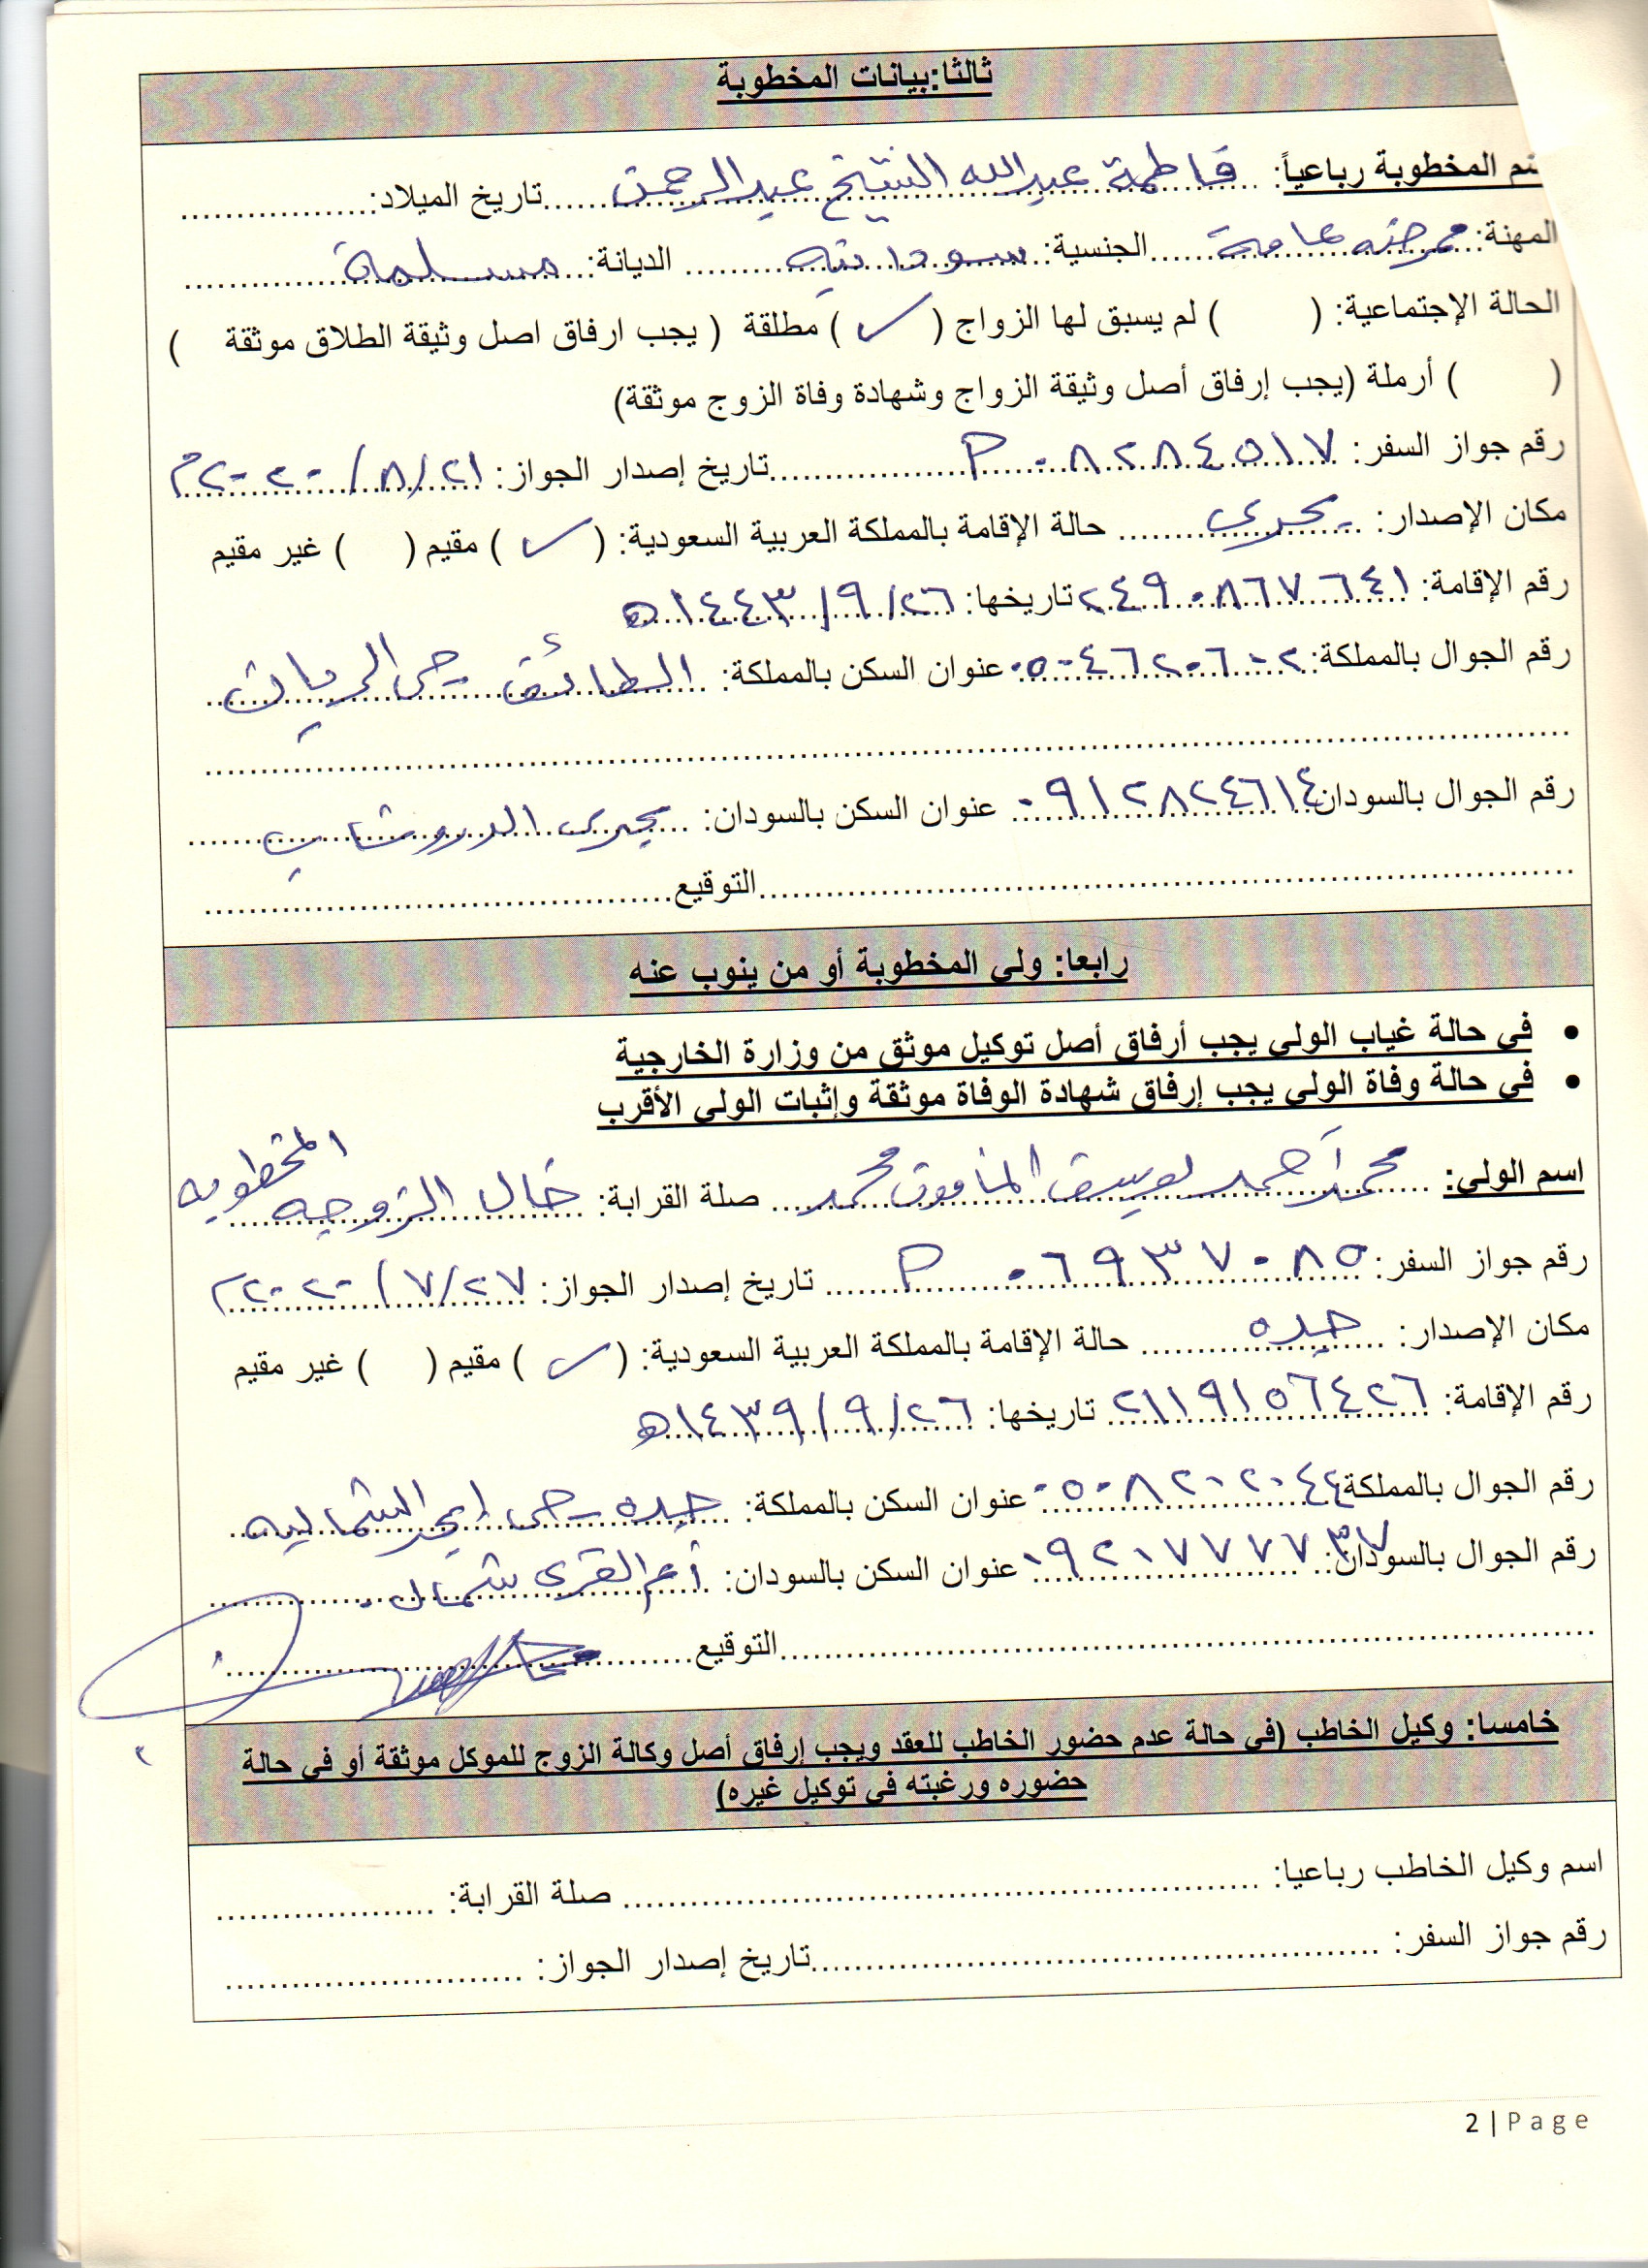 ثالثا:بيانات المخطوبة
م المخطوبة رباعياً: فاطمة عبدالله الشيخ عبدالرحمن تاريخ الميلاد:
المهنة: ممرضه عامة الجنسية: سودانيه الديانة: مسلمة
الحالة الإجتماعية: ( ) لم يسبق لها الزواج ( ✓ ) مطلقة ( يجب ارفاق اصل وثيقة الطلاق موثقة )
( ) أرملة (يجب إرفاق أصل وثيقة الزواج وشهادة وفاة الزوج موثقة)
رقم جواز السفر: P٠٨٢٨٤٥١٧ تاريخ إصدار الجواز: ٢١/٨/٢٠٢٠م
مكان الإصدار: بحري حالة الإقامة بالمملكة العربية السعودية: ( ✓ ) مقيم ( ) غير مقيم
رقم الإقامة: ٢٤٩٠٨٦٧٦٤١ تاريخها: ٢٦/٩/١٤٤٣ه
رقم الجوال بالمملكة: ٠٥٠٤٦٢٠٦٠٢ عنوان السكن بالمملكة: الطائف حى الريان
رقم الجوال بالسودان ٠٩١٢٨٢٤٦١٤ عنوان السكن بالسودان: بحرى الدروشاب
التوقيع
رابعا: ولى المخطوبة أو من ينوب عنه
• فى حالة غياب الولى يجب أرفاق أصل توكيل موثق من وزارة الخارجية
• فى حالة وفاة الولى يجب إرفاق شهادة الوفاة موثقة وإثبات الولى الأقرب
اسم الولى: محمد أحمد يوسف محمد صلة القرابة: خال الزوجه المخطوبه
رقم جواز السفر: P٠٦٩٣٧٠٨٥ تاريخ إصدار الجواز: ٢٧/٧/٢٠٢٠م
مكان الإصدار: جده حالة الإقامة بالمملكة العربية السعودية: ( ✓ ) مقيم ( ) غير مقيم
رقم الإقامة: ٢١١٩١٥٦٤٢٦ تاريخها: ٢٦/٩/١٤٣٩ه
رقم الجوال بالمملكة ٠٥٠٨٢٠٢٠٤٤ عنوان السكن بالمملكة: جده حى أبحر الشماليه
رقم الجوال بالسودان: ٠٩٢٠٧٧٧٧٣٧ عنوان السكن بالسودان: أم القرى شمال
التوقيع
خامسا: وكيل الخاطب (فى حالة عدم حضور الخاطب للعقد ويجب إرفاق أصل وكالة الزوج للموكل موثقة أو فى حالة
حضوره ورغبته فى توكيل غيره)
اسم وكيل الخاطب رباعيا: صلة القرابة:
رقم جواز السفر: تاريخ إصدار الجواز:
2 | Page